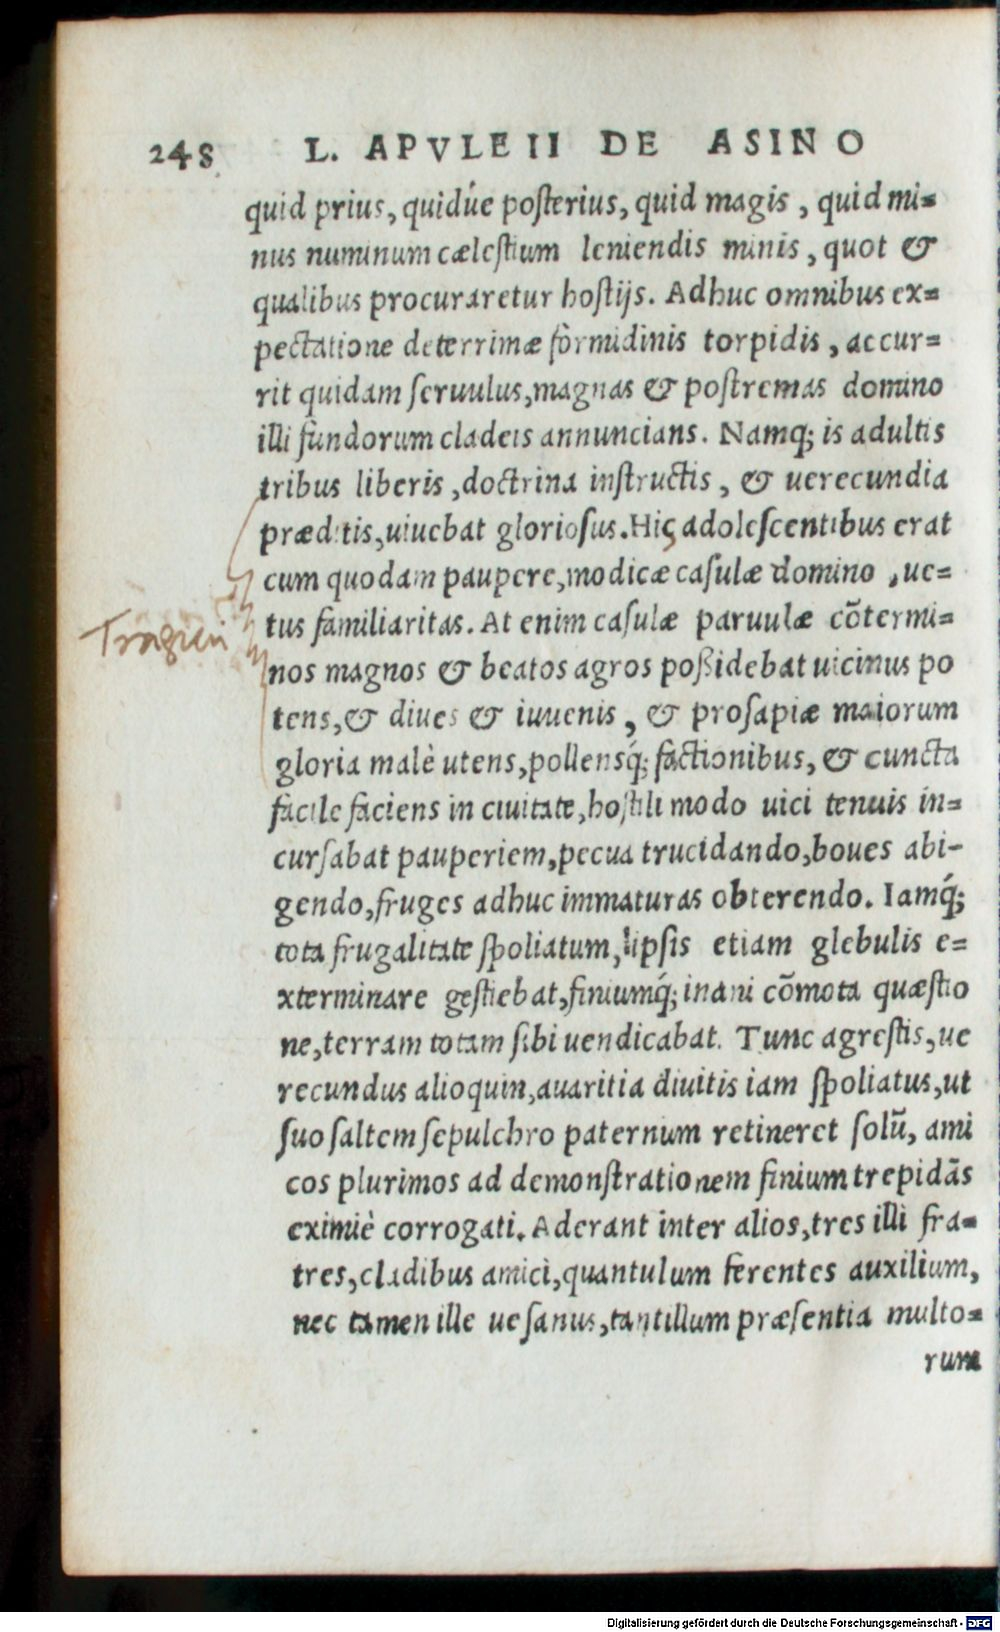 248 L. APVLEII DE ASINO
quid prius, quidúe posterius, quid magis, quid mi=
nus numinum cælestium leniendis minis, quot &
qualibus procuraretur hostijs. Adhuc omnibus ex=
pectatione deterrimæ formidinis torpidis, accur=
rit quidam seruulus, magnas & postremas domino
illi fundorum cladeis annuncians. Namq; is adultis
tribus liberis, doctrina instructis, & uerecundia
præditis, uiuebat gloriosus. His adolescentibus erat
cum quodam paupere, modicæ casulæ domino, ue=
Tragicū
tus familiaritas. At enim casulæ paruulæ cõtermi=
nos magnos & beatos agros poßidebat uicinus po
tens, & diues & iuuenis, & prosapiæ maiorum
gloria malè utens, pollensq́; factionibus, & cuncta
facile faciens in ciuitate, hostili modo uici tenuis in=
cursabat pauperiem, pecua trucidando, boues abi-
gendo, fruges adhuc immaturas obterendo. Iamq́;
tota frugalitate spoliatum, ipsis etiam glebulis e=
xterminare gestiebat, finiumq́; inani cõmota quæstio
ne, terram totam sibi uendicabat. Tunc agrestis, ue
recundus alioquin, auaritia diuitis iam spoliatus, ut
suo saltem sepulchro paternum retineret solũ, ami
cos plurimos ad demonstrationem finium trepidãs
eximiè corrogati. Aderant inter alios, tres illi fra=
tres, cladibus amici, quantulum ferentes auxilium,
nec tamen ille uesanus, tantillum præsentia multo=
rum
Digitalisierung gefördert durch die Deutsche Forschungsgemeinschaft - DFG